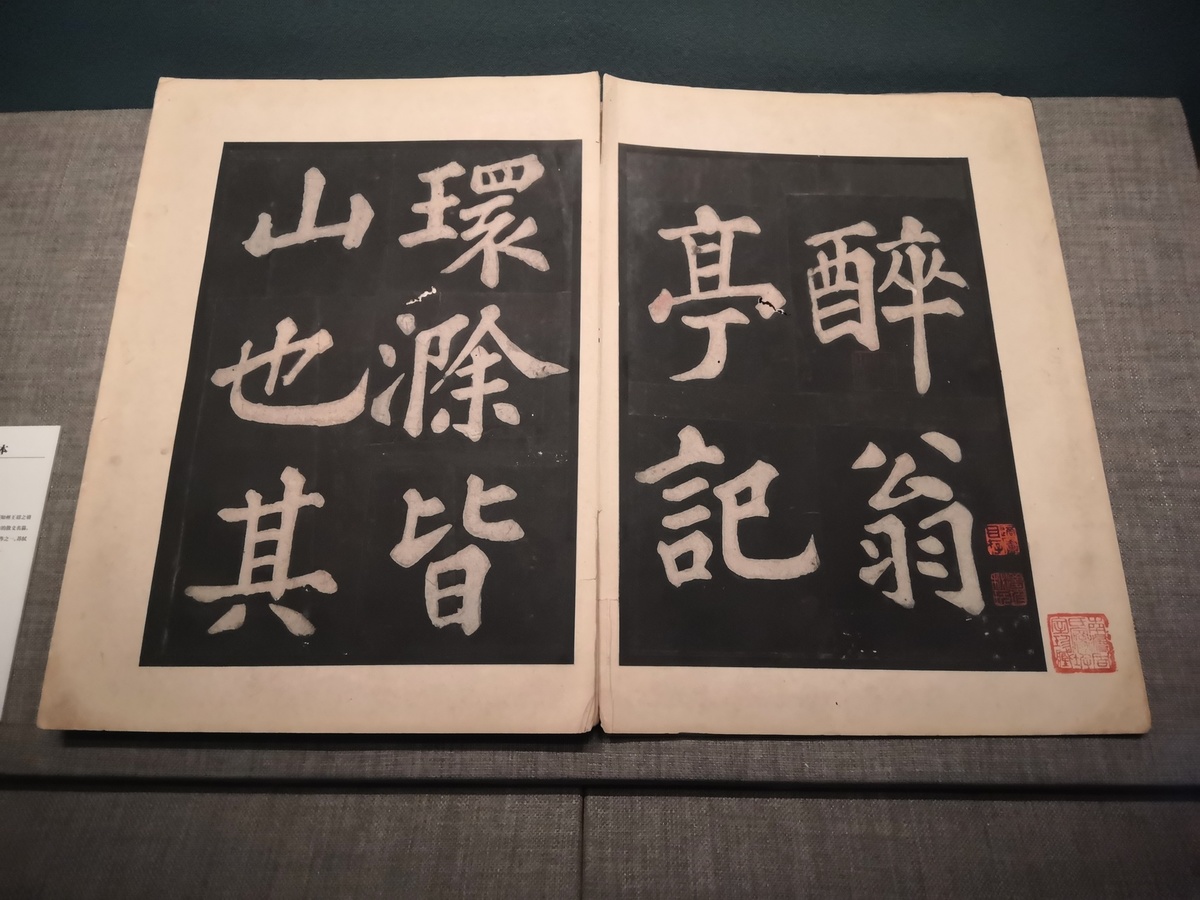 醉翁
亭記
環滁皆
山也其
本